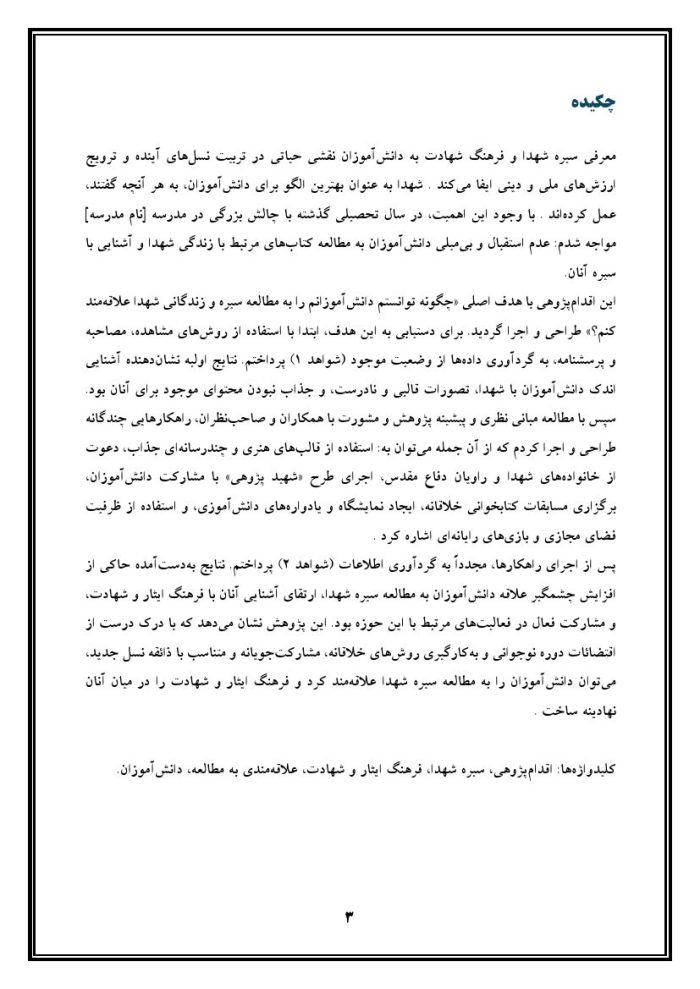 چکیده
معرفی سیره شهدا و فرهنگ شهادت به دانش‌آموزان نقشی حیاتی در تربیت نسل‌های آینده و ترویج
ارزش‌های ملی و دینی ایفا می‌کند . شهدا به عنوان بهترین الگو برای دانش‌آموزان، به هر آنچه گفتند،
عمل کرده‌اند . با وجود این اهمیت، در سال تحصیلی گذشته با چالش بزرگی در مدرسه [نام مدرسه]
مواجه شدم: عدم استقبال و بی‌میلی دانش‌آموزان به مطالعه کتاب‌های مرتبط با زندگی شهدا و آشنایی با
سیره آنان.
این اقدام‌پژوهی با هدف اصلی «چگونه توانستم دانش‌آموزانم را به مطالعه سیره و زندگانی شهدا علاقه‌مند
کنم؟» طراحی و اجرا گردید. برای دستیابی به این هدف، ابتدا با استفاده از روش‌های مشاهده، مصاحبه
و پرسشنامه، به گردآوری داده‌ها از وضعیت موجود (شواهد ۱) پرداختم. نتایج اولیه نشان‌دهنده آشنایی
اندک دانش‌آموزان با شهدا، تصورات قالبی و نادرست، و جذاب نبودن محتوای موجود برای آنان بود.
سپس با مطالعه مبانی نظری و پیشینه پژوهش و مشورت با همکاران و صاحب‌نظران، راهکارهایی چندگانه
طراحی و اجرا کردم که از آن جمله می‌توان به: استفاده از قالب‌های هنری و چندرسانه‌ای جذاب، دعوت
از خانواده‌های شهدا و راویان دفاع مقدس، اجرای طرح «شهید پژوهی» با مشارکت دانش‌آموزان،
برگزاری مسابقات کتابخوانی خلاقانه، ایجاد نمایشگاه و یادواره‌های دانش‌آموزی، و استفاده از ظرفیت
فضای مجازی و بازی‌های رایانه‌ای اشاره کرد .
پس از اجرای راهکارها، مجدداً به گردآوری اطلاعات (شواهد ۲) پرداختم. نتایج به‌دست‌آمده حاکی از
افزایش چشمگیر علاقه دانش‌آموزان به مطالعه سیره شهدا، ارتقای آشنایی آنان با فرهنگ ایثار و شهادت،
و مشارکت فعال در فعالیت‌های مرتبط با این حوزه بود. این پژوهش نشان می‌دهد که با درک درست از
اقتضائات دوره نوجوانی و به‌کارگیری روش‌های خلاقانه، مشارکت‌جویانه و متناسب با ذائقه نسل جدید،
می‌توان دانش‌آموزان را به مطالعه سیره شهدا علاقه‌مند کرد و فرهنگ ایثار و شهادت را در میان آنان
نهادینه ساخت .
کلیدواژه‌ها: اقدام‌پژوهی، سیره شهدا، فرهنگ ایثار و شهادت، علاقه‌مندی به مطالعه، دانش‌آموزان.
۳